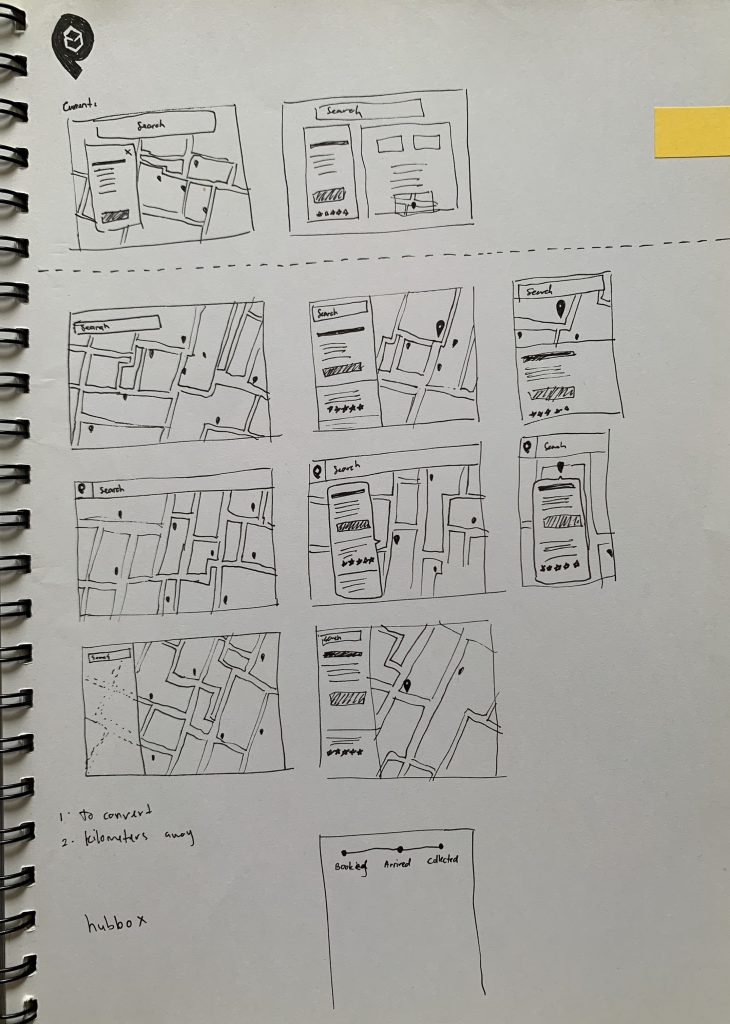 Current:
Search
Search
Search
Search
Search
Search
Search
Search
Search
Search
1. To convert
2. kilometers away
Booking
Arrived
Collected
hubbox